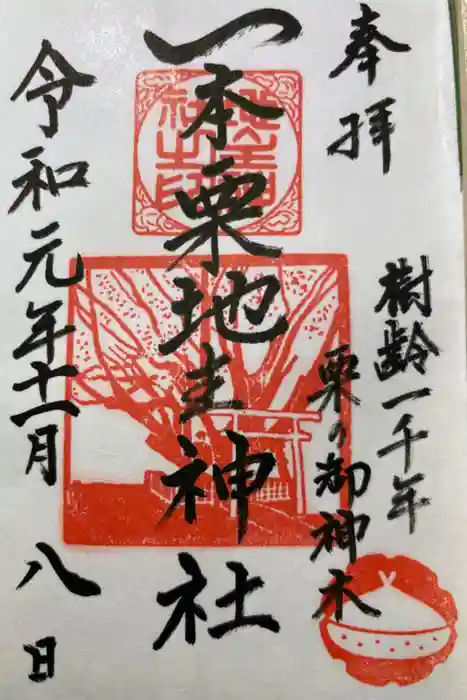 奉拝
樹齢一千年
栗の御神木
一本栗地主神社
令和元年十一月八日